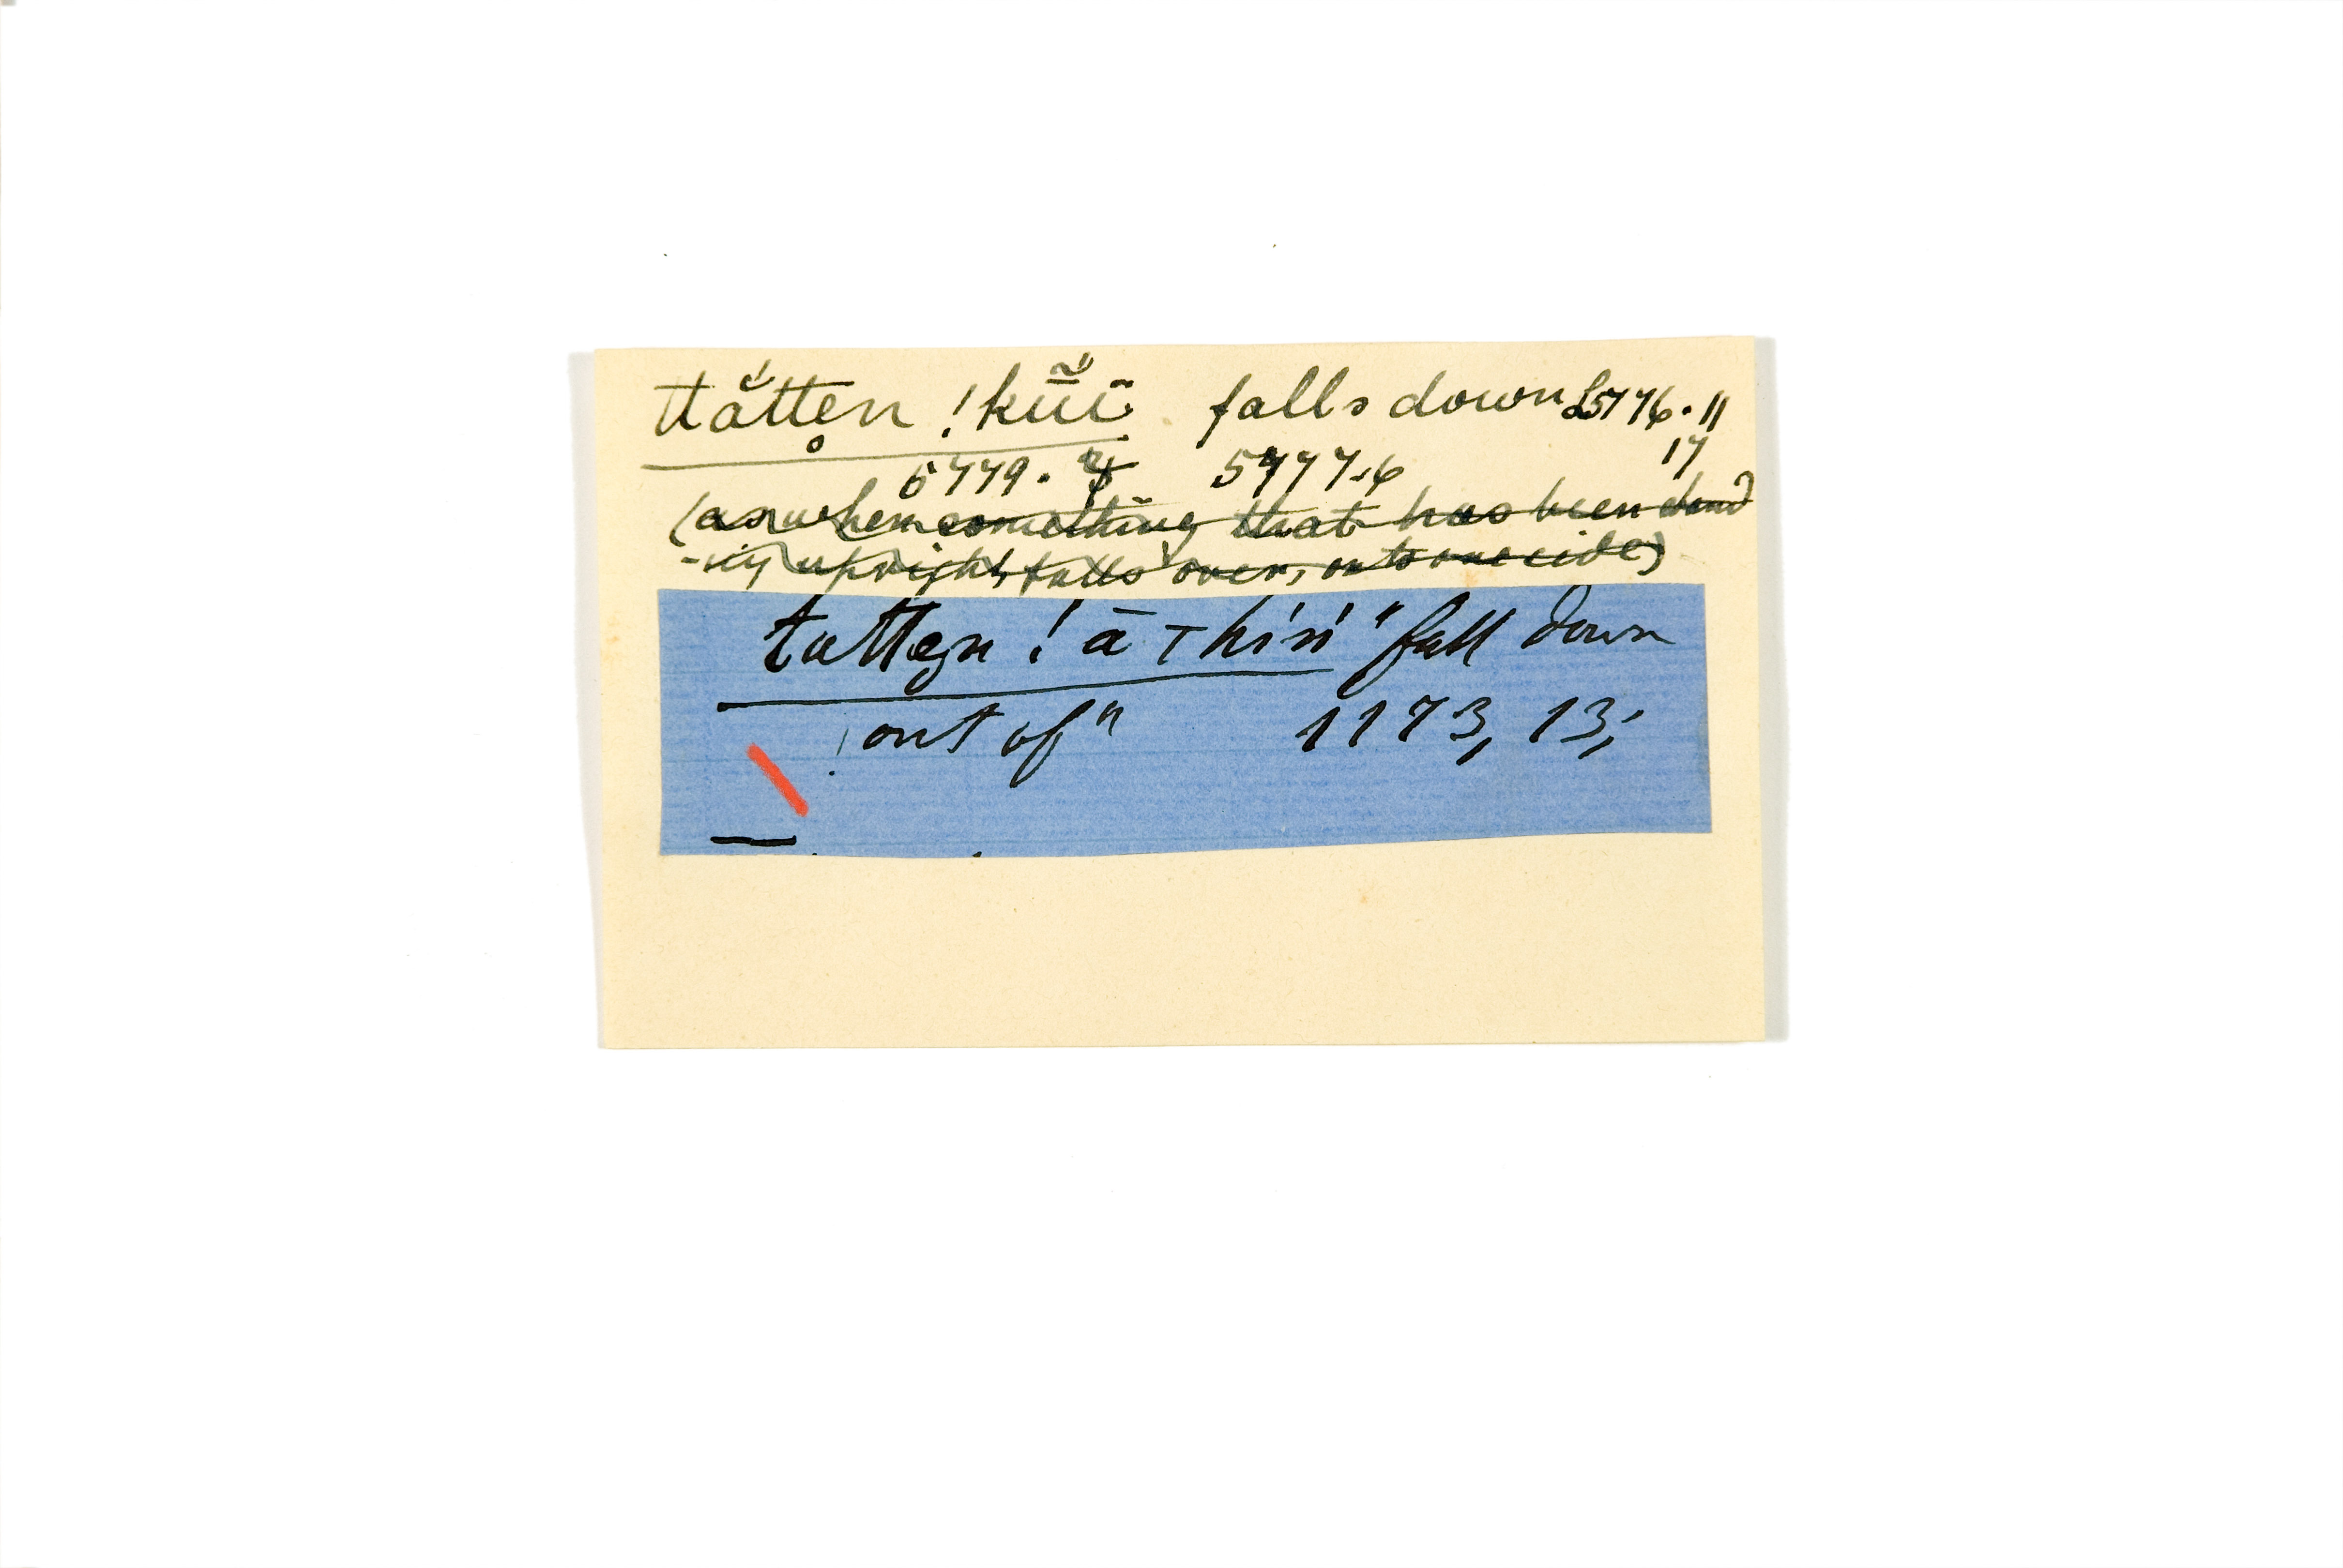 ttắtten !kũï falls down L5776.11
17
5779. 5777.6
(as when something that has been stand
-ing upright, falls over, on to one side)
tatten ! ā Thin "fall down
out of" 1173, 13;